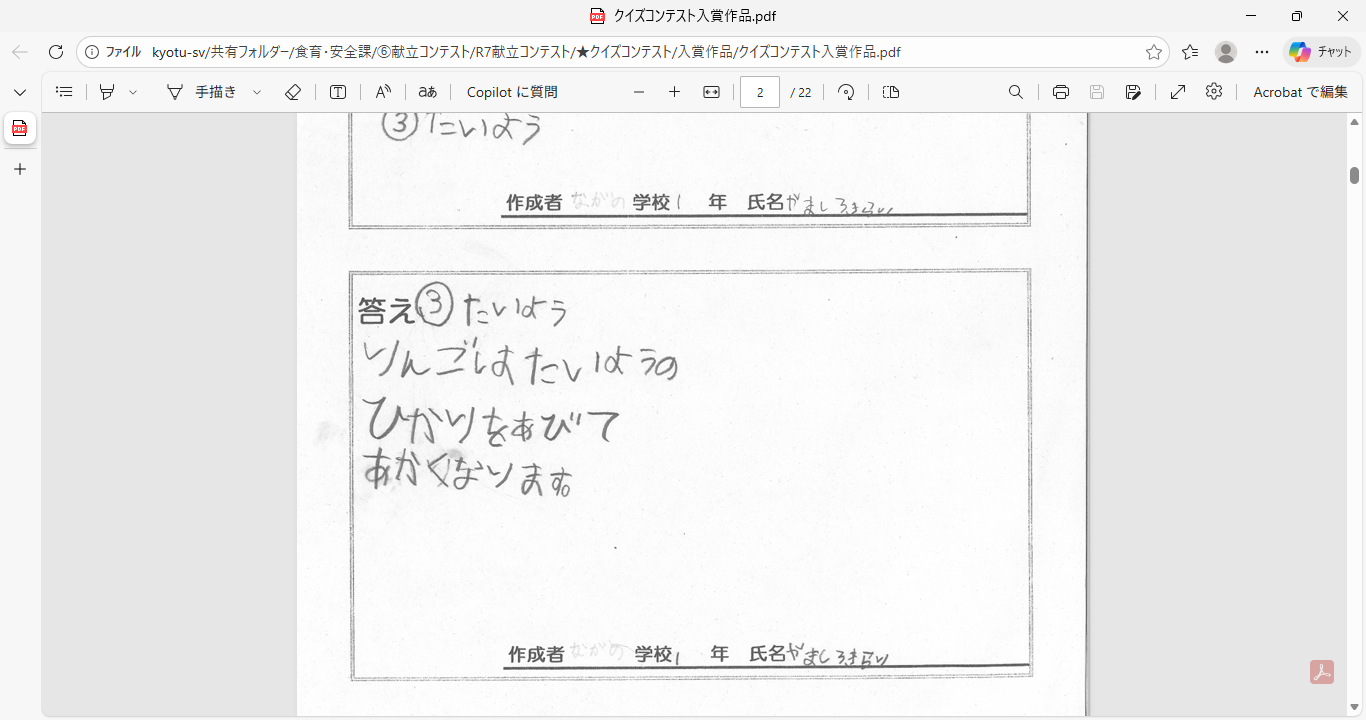 クイズコンテスト入賞作品.pdf
ファイル kyotu-sv/共有フォルダー/食育・安全課/⑥献立コンテスト/R7献立コンテスト/★クイズコンテスト/入賞作品/クイズコンテスト入賞作品.pdf
チャット
手描き
aあ
Copilot に質問
2 / 22
Acrobat で編集
③たいよう
作成者 ながの 学校 1 年 氏名 やましろきらり
答え ③ たいよう
りんごはたいようの
ひかりをあびて
あかくなります。
作成者 ながの 学校 1 年 氏名 やましろきらり